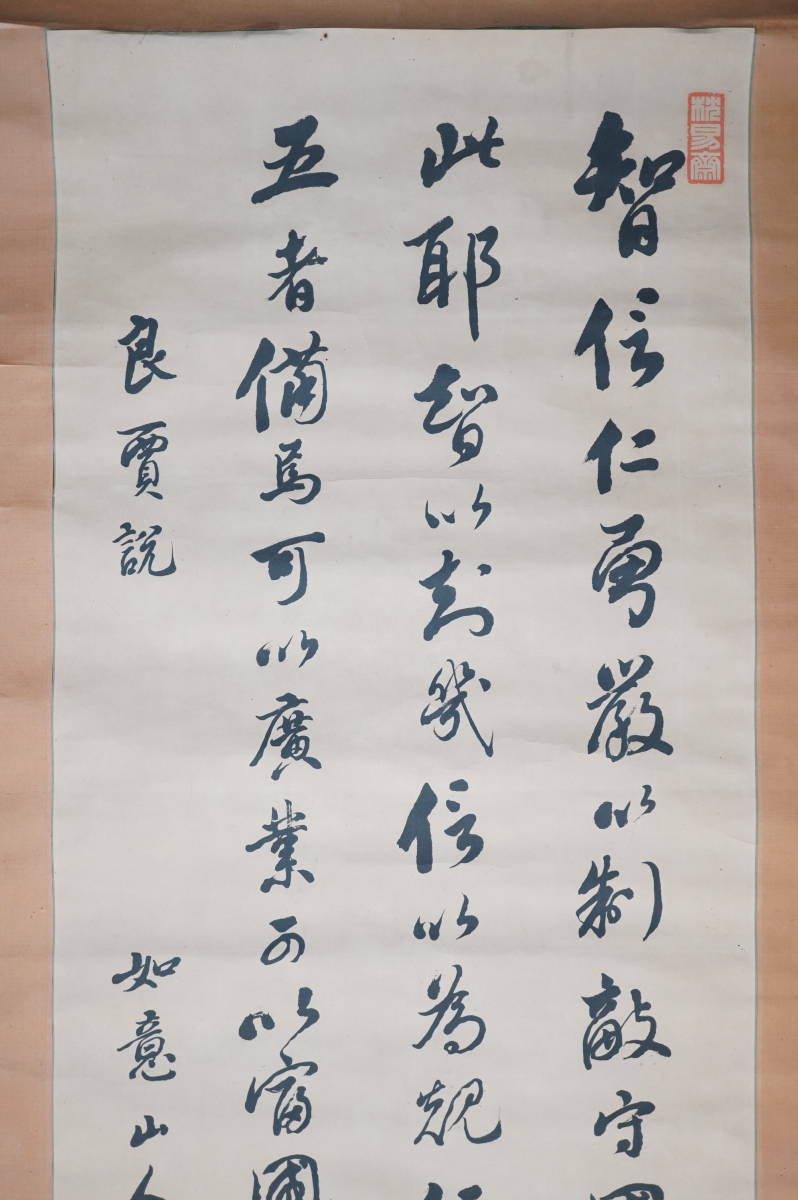 枕易齋
智信仁勇嚴以制敵守
此耶智以幾信以為規
五者備焉可以廣業可以富國
良賈說
如意山人